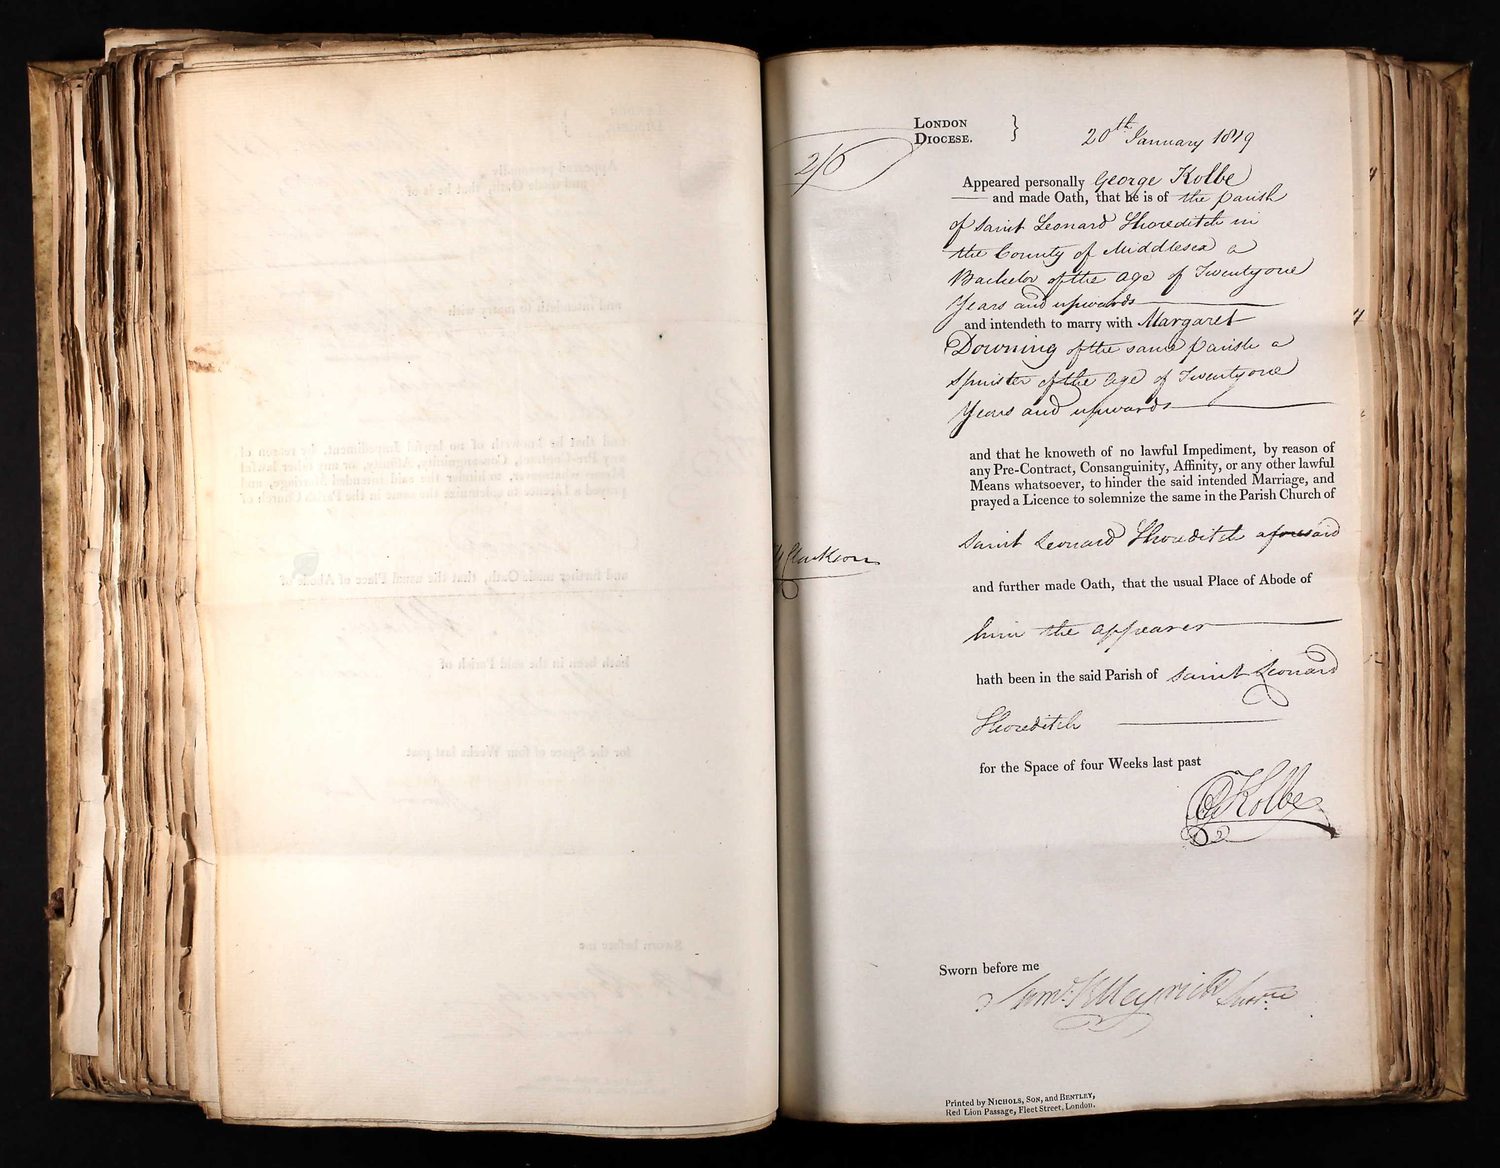 LONDON
DIOCESE. }
20th January 1819
2/6
Appeared personally George Kolbe
and made Oath, that he is of the parish
of Saint Leonard Shoreditch in
the County of Middlesex a
Bachelor of the age of Twentyone
Years and upwards
and intendeth to marry with Margaret
Downing of the same parish a
Spinster of the age of Twentyone
Years and upwards
and that he knoweth of no lawful Impediment, by reason of
any Pre-Contract, Consanguinity, Affinity, or any other lawful
Means whatsoever, to hinder the said intended Marriage, and
prayed a Licence to solemnize the same in the Parish Church of
Saint Leonard Shoreditch aforesaid
Clarkson
and further made Oath, that the usual Place of Abode of
him the appearer
hath been in the said Parish of Saint Leonard
Shoreditch
for the Space of four Weeks last past
G Kolbe
Sworn before me
Saml. Meyrick Surte.
Printed by NICHOLS, SON, and BENTLEY,
Red Lion Passage, Fleet Street, London.